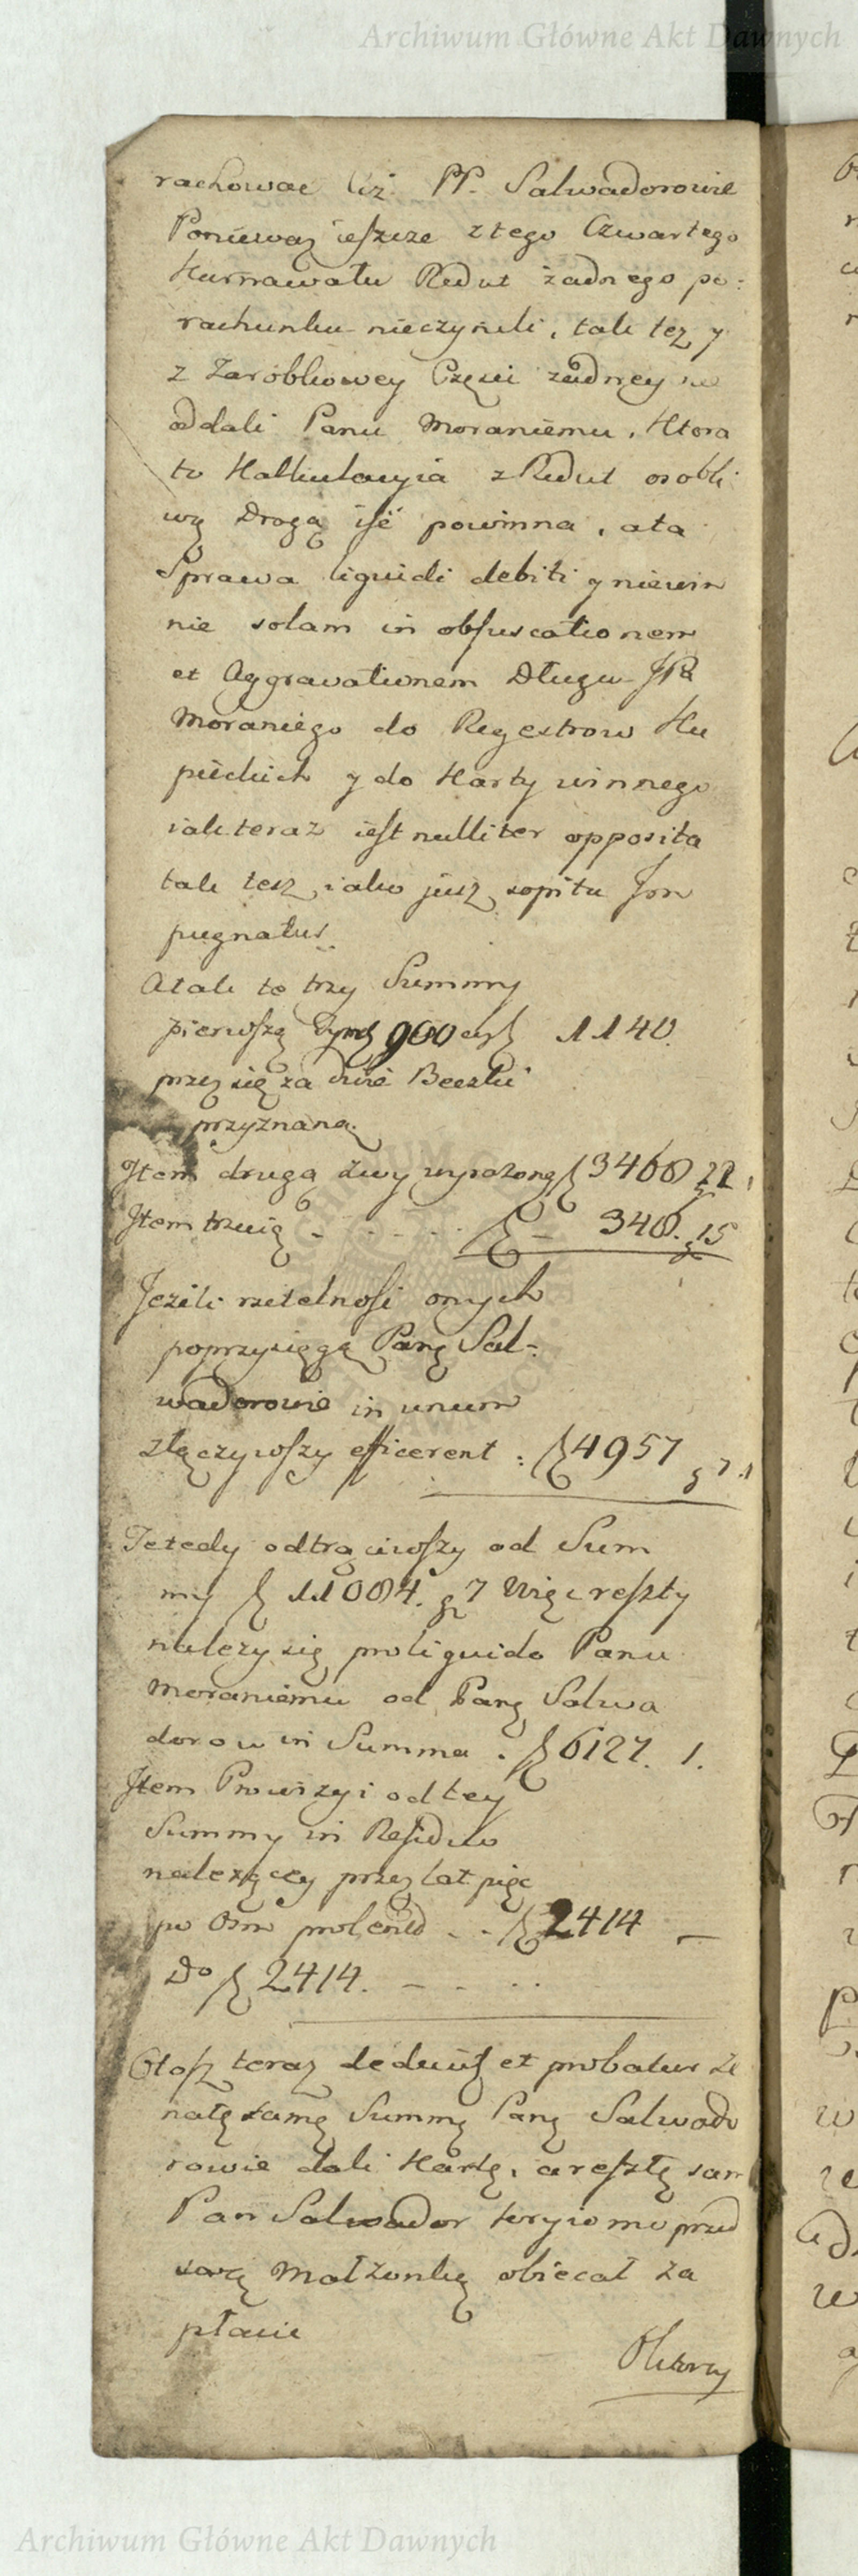 Archiwum Główne Akt Dawnych
rachowac Ciż PP. Salwadorowie
Poniewaz ieszcze z tego Czwartego
Karnawału Redut żadnego po:
rachunku nieczynili, tak tez y
z Zarobkowey Częsci żadney nie
oddali Panu Moraniemu, Ktora
to Kalkulacyia z Redut osobli
wą Drogą iść powinna, ata
Sprawa liquidi debiti y niewin
nie solam in obfuscationem
et Aggravationem Długu JP
Moraniego do Regestrow Ku
pieckich y do Karty winnego
iak teraz iest nulliter opposita
tak tesz iako jusz sopita
pugnatur.
Atak te trzy Summy
pierwszą 900 1140.
przez się za dwie Beczki
przyznaną
Item drugą zwy wyrażoną 3468 22
Item trzecią - . . . . 348. 15
Jeżeli rzetelnosi onych
poprzysięgą Pang Sal-
wadorowie in unum
złączywszy efficerent : 4957 7.
Te tedy odtrąciwszy od Sum
my 11084. g 7 Więc reszty
nalezy się pro liquido Panu
Moraniemu od Pang Salwa
dorow in Summa . 6127. 1.
Item Prowizyi od tey
Summy in Residuo
nalezącey przez lat pięc
po Osm procent . . 2414 —
Do 2414. — - . .
Otosz teraz deducit et probatur że
natę samą Summę Pang Salwado
rowie dali Kartę, a resztę sam
Pan Salwador przed
swą Małzonką obiecał za
płacic
Ktorzy
Archiwum Główne Akt Dawnych